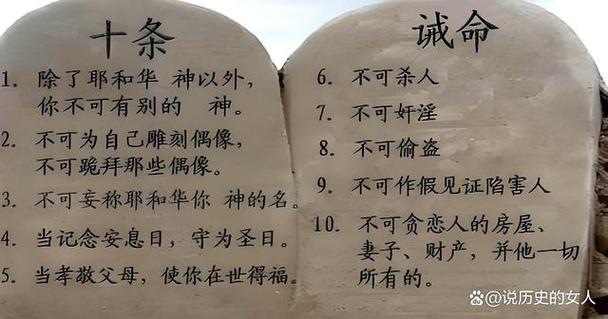 十条
1. 除了耶和华 神以外,
你不可有别的 神。
2. 不可为自己雕刻偶像,
不可跪拜那些偶像。
3. 不可妄称耶和华你 神的名。
4. 当记念安息日,守为圣日。
5. 当孝敬父母,使你在世得福。
诫命
6. 不可杀人
7. 不可奸淫
8. 不可偷盗
9. 不可作假见证陷害人
10. 不可贪恋人的房屋、
妻子、财产,并他一切
所有的。
@说历史的女人